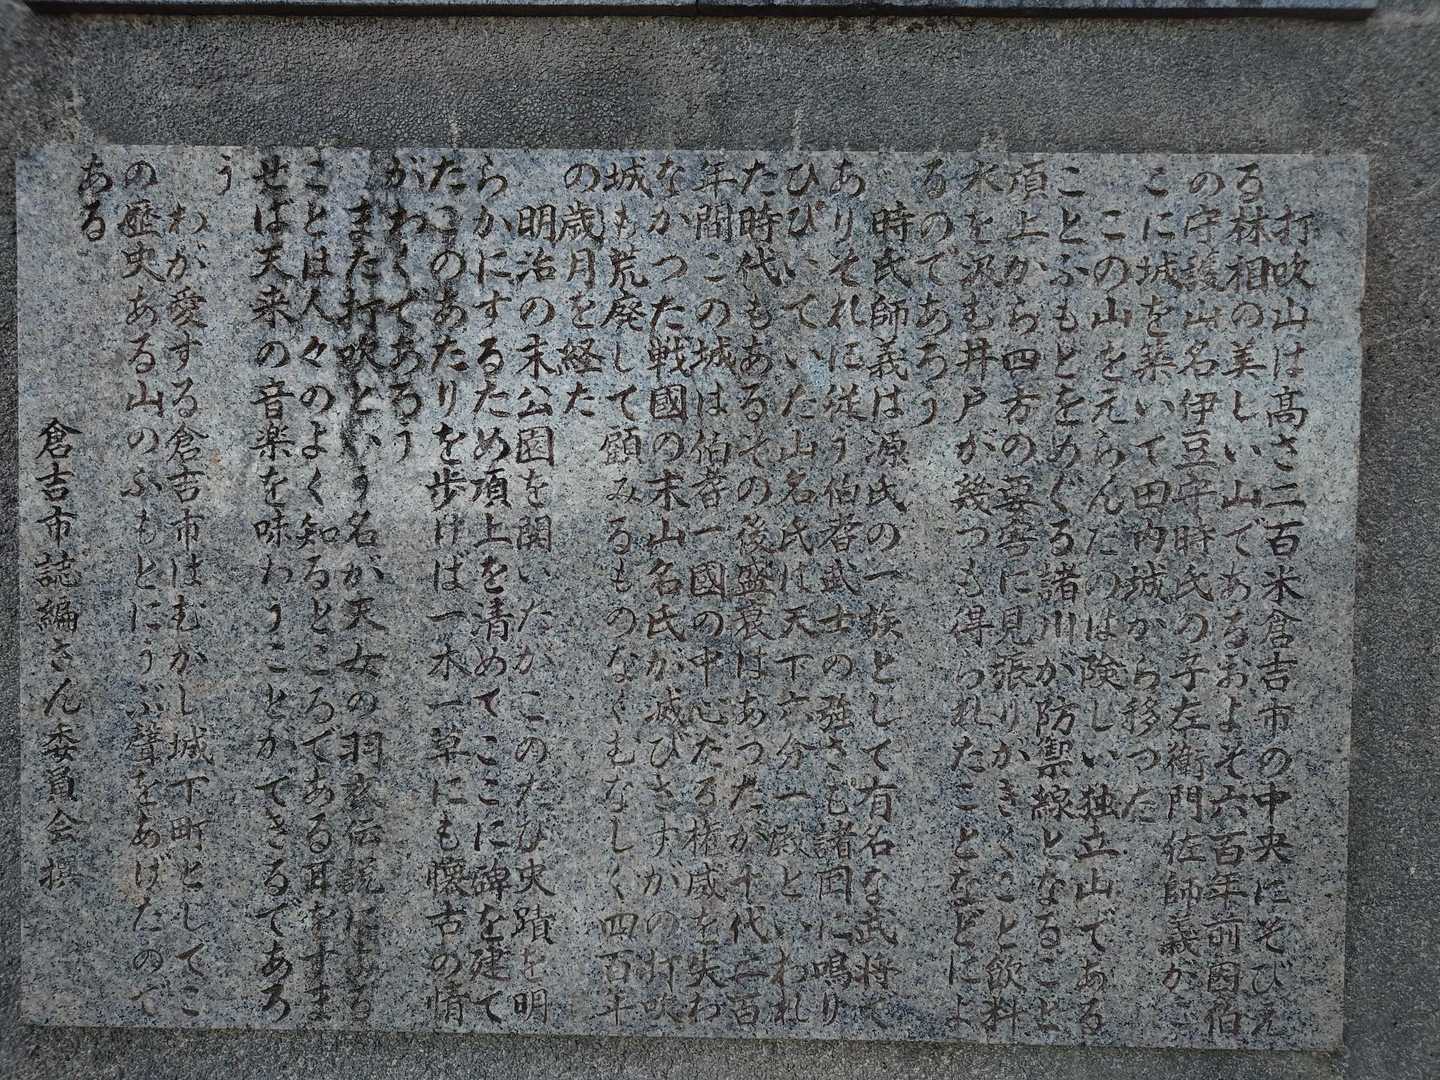 打吹山は高さ二百米倉吉市の中央にそびえ
る林相の美しい山であるおよそ六百年前因伯
の守護山名伊豆守時氏の子左衛門佐師義がこ
こに城を築いて田内城から移つた
この山をえらんだのは険しい独立山である
ことふもとをめぐる諸川が防禦線となること
頂上から四方の要害に見張りがきくこと飲料
水を汲む井戸が幾つも得られたことなどによ
るのであろう
時氏師義は源氏の一族として有名な武将で
ありそれに従う伯耆武士の強さも諸国に鳴り
ひびいていた山名氏は天下六分一殿といわれ
た時代もあるその後盛衰はあつたが十代二百
年間この城は伯耆一國の中心たる権威を失わ
なかつた戦國の末山名氏が滅びさすがの打吹
城も荒廃して顧みるものなくむなしく四百年
の歳月を経た
明治の末公園を開いたがこのたび史蹟を明
らかにするため頂上を清めてここに碑を建て
たこのあたりを歩けば一木一草にも懐古の情
がわくであろう
また打吹という名が天女の羽衣伝説による
ことは人々のよく知るところである耳をすま
せば天来の音楽を味わうことができるであろ
う
わが愛する倉吉市はむかし城下町としてこ
の歴史ある山のふもとにうぶ聲をあげたので
ある
倉吉市誌編さん委員会撰